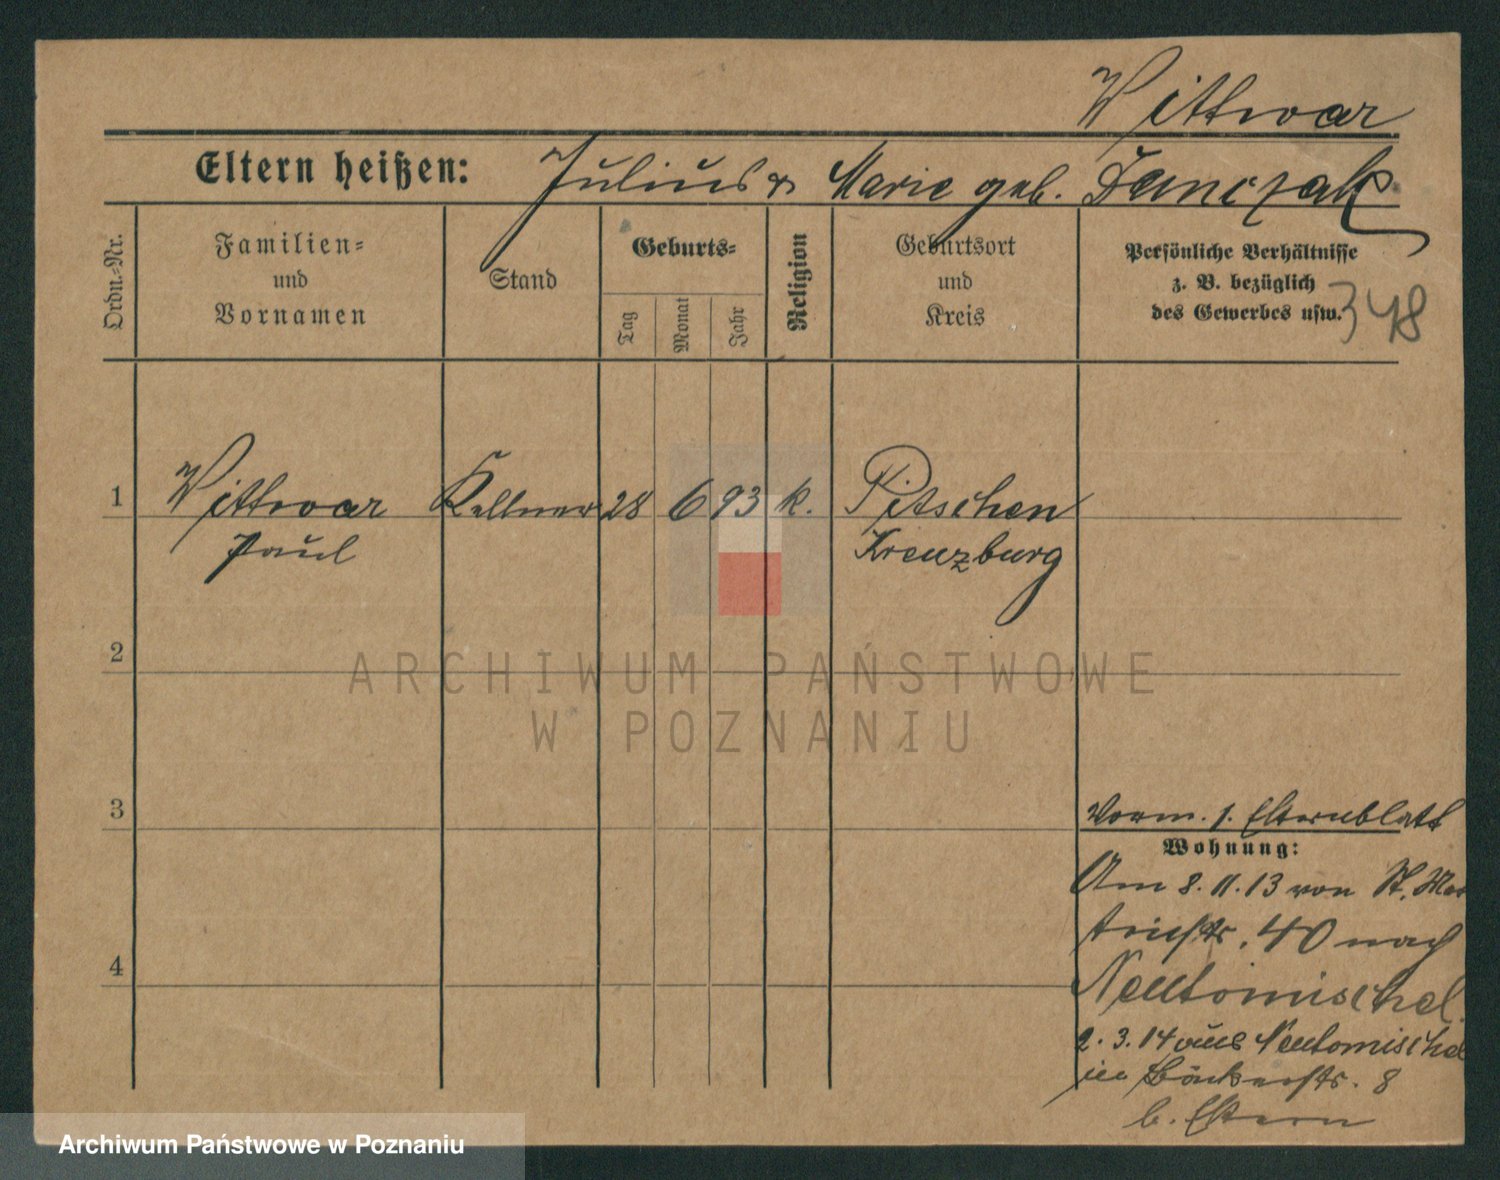 Wittwar
Eltern heißen: Julius & Marie geb. Janczak
Ordn.-Nr.
Familien-
und
Vornamen
Stand
Geburts-
Tag
Monat
Jahr
Religion
Geburtsort
und
Kreis
Persönliche Verhältnisse
z. B. bezüglich
des Gewerbes usw.
348
1 Wittwar Kellner 28 6 93 k. Pitschen
Paul Kreuzburg
2
ARCHIWUM PAŃSTWOWE
W POZNANIU
3
Vorm. 1. Elternblatt
Wohnung:
Am 8.11.13 von St. Mar
40 nach
4
Neutomischel.
2.3.14 aus Neutomischel
in Bäckerstr. 8
b. Eltern
Archiwum Państwowe w Poznaniu